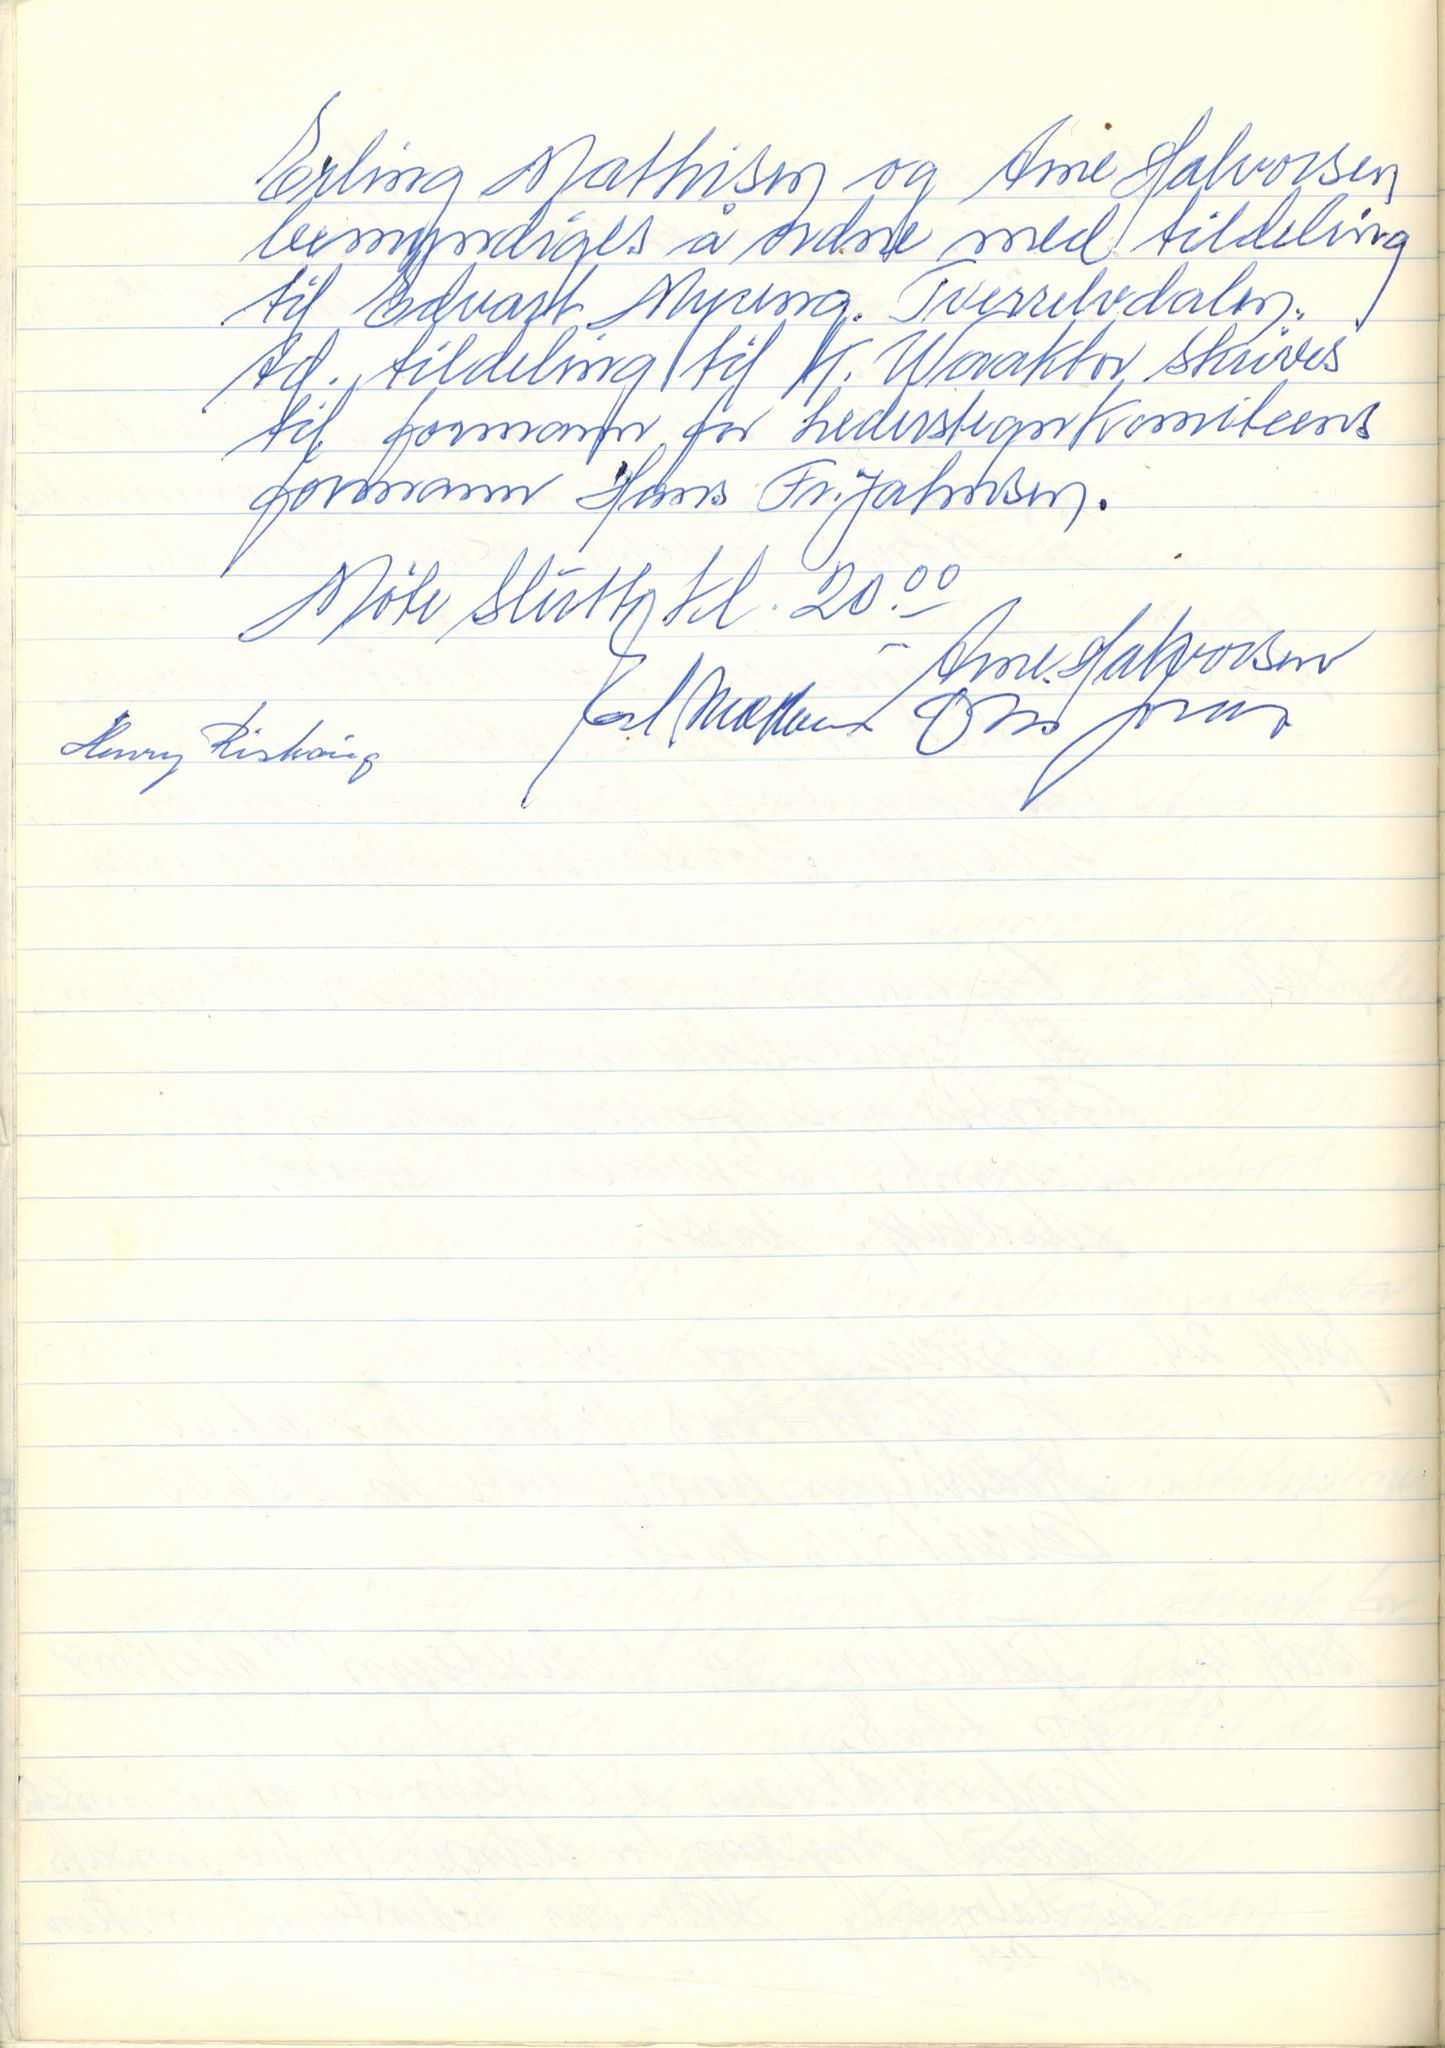 Erling Mathisen og Arne Halvorsen
bemyndiges å ordne med tildeling
til Edvart Myreng. Tverrelvdalen.
Ad. tildeling til K. Waaktor skrives
til formann for hederstegnkomiteens
formann Hans Fr. Jahnsen.
Møte slutt kl. 20.00
Arne Halvorsen
Henry